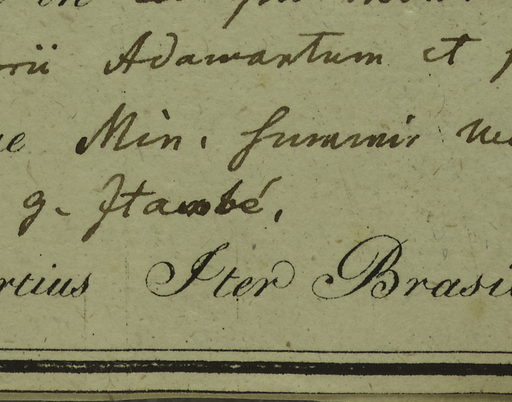 rii Adamantum et
Min. summis
g. Itambé.
rtius Iter Brasil